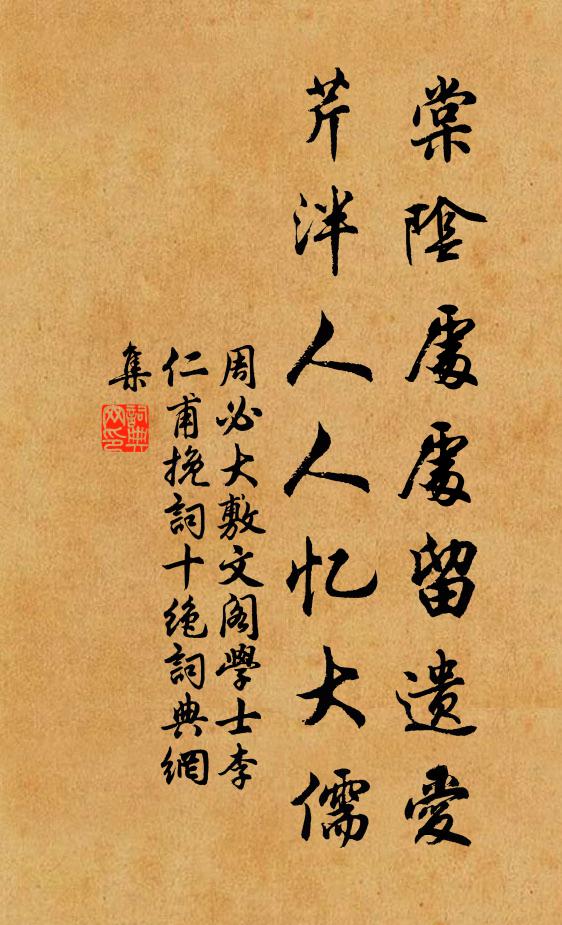 棠陰處處留遺愛
芹泮人人忆大儒
周必大敷文阁學士李
仁甫挽詞十绝詞典網
集
詞典网印